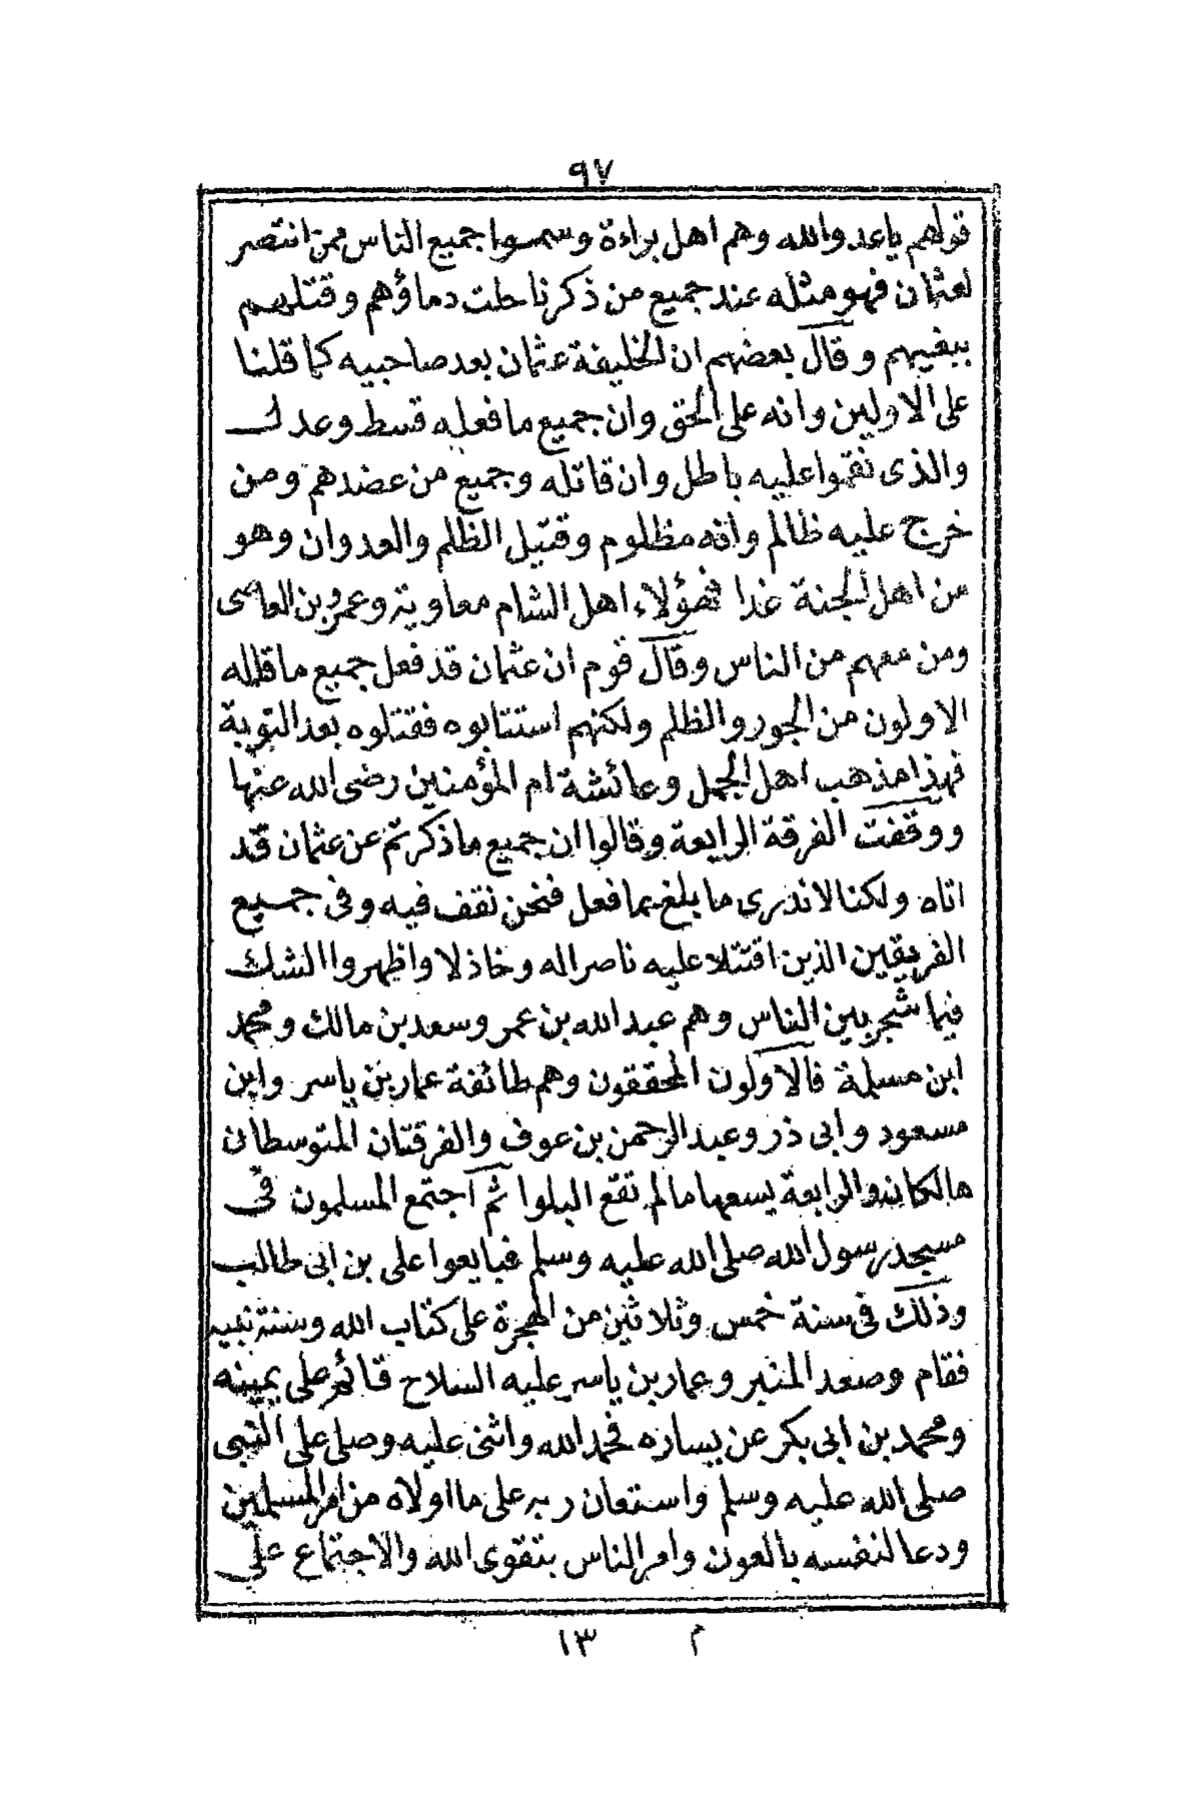 ٩٧
قولهم ياعدو الله وهم اهل براءة وسموا جميع الناس ممن انتصر
لعثمان فهو مثله عند جميع من ذكرنا حلت دماؤهم وقتلهم
ببغيهم وقال بعضهم ان الخليفة عثمان بعد صاحبيه كما قلنا
على الاولين وانه على الحق وان جميع ما فعله قسط وعدل
والذى نقموا عليه باطل وان قاتله وجميع من عضدهم ومن
خرج عليه ظالم وانه مظلوم وقتيل الظلم والعدوان وهو
من اهل الجنة غدا فهؤلاء اهل الشام معاوية وعمرو بن العاصى
ومن معهم من الناس وقال قوم ان عثمان قد فعل جميع ما قاله
الاولون من الجور والظلم ولكنهم استتابوه فقتلوه بعد التوبة
فهذا مذهب اهل الجمل وعائشة ام المؤمنين رضى الله عنها
ووقفت الفرقة الرابعة وقالوا ان جميع ما ذكرتم عن عثمان قد
اتاه ولكنا لا ندرى ما بلغ بما فعل فنحن نقف فيه وفى جميع
الفريقين الذين اقتتلا عليه ناصرا له وخاذلا واظهروا الشك
فيما شجر بين الناس وهم عبد الله بن عمر وسعد بن مالك ومحمد
ابن مسلمة فالاولون المحققون وهم طائفة عمار بن ياسر وابن
مسعود وابى ذر وعبد الرحمن بن عوف والفرقتان المتوسطان
هالكان والرابعة يسعها مالم تقع البلوا ثم اجتمع المسلمون فى
مسجد رسول الله صلى الله عليه وسلم فبايعوا على بن ابى طالب
وذلك فى سنة خمس وثلاثين من الهجرة على كتاب الله وسنة نبيه
فقام وصعد المنبر وعمار بن ياسر عليه السلاح قائم على يمينه
ومحمد بن ابى بكر عن يساره فحمد الله واثنى عليه وصلى على النبى
صلى الله عليه وسلم واستعان ربه على ما اولاه من امر المسلمين
ودعا لنفسه بالعون وامر الناس بتقوى الله والاجتماع على
م ١٣